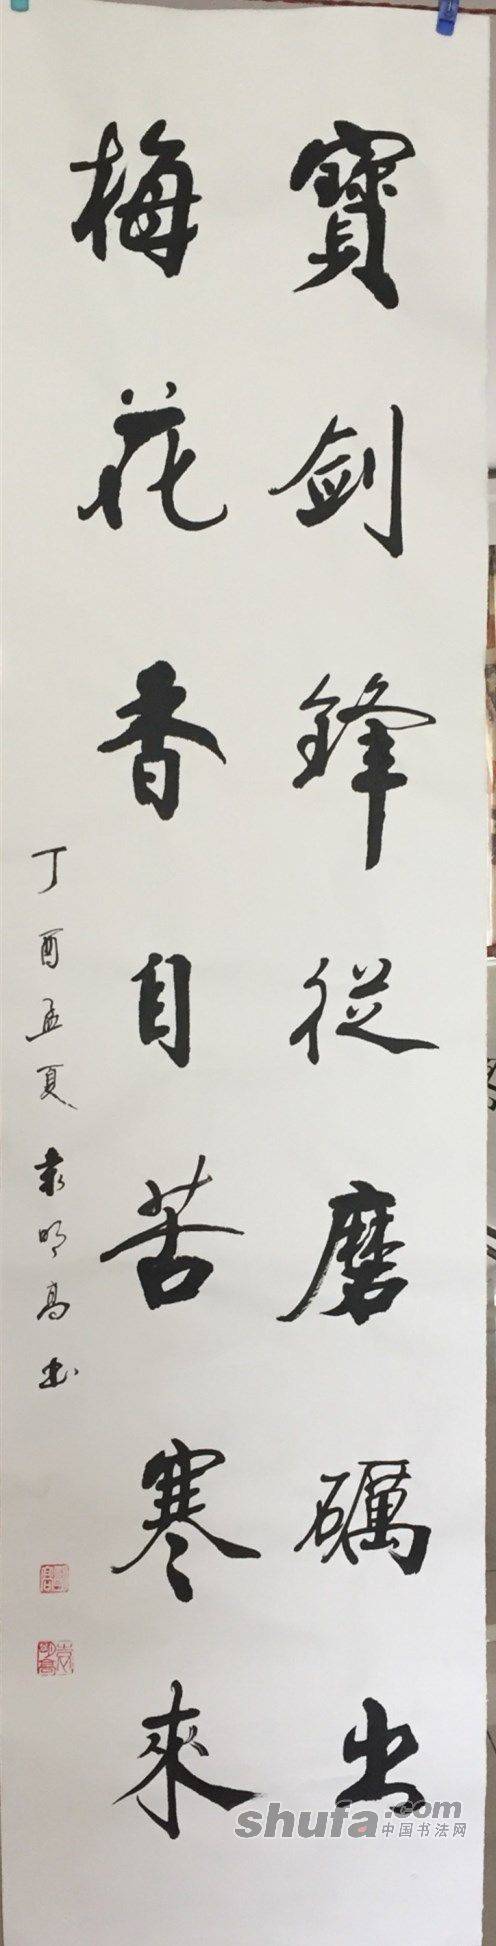 寶劍鋒從磨礪出
梅花香自苦寒來
丁酉孟夏袁明高书
shufa.com
中国书法网